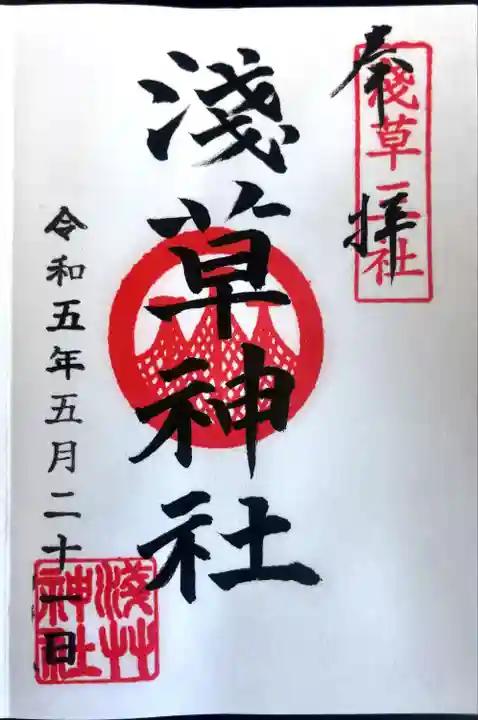 奉拝
浅草三社
淺草神社
令和五年五月二十一日
淺草神社